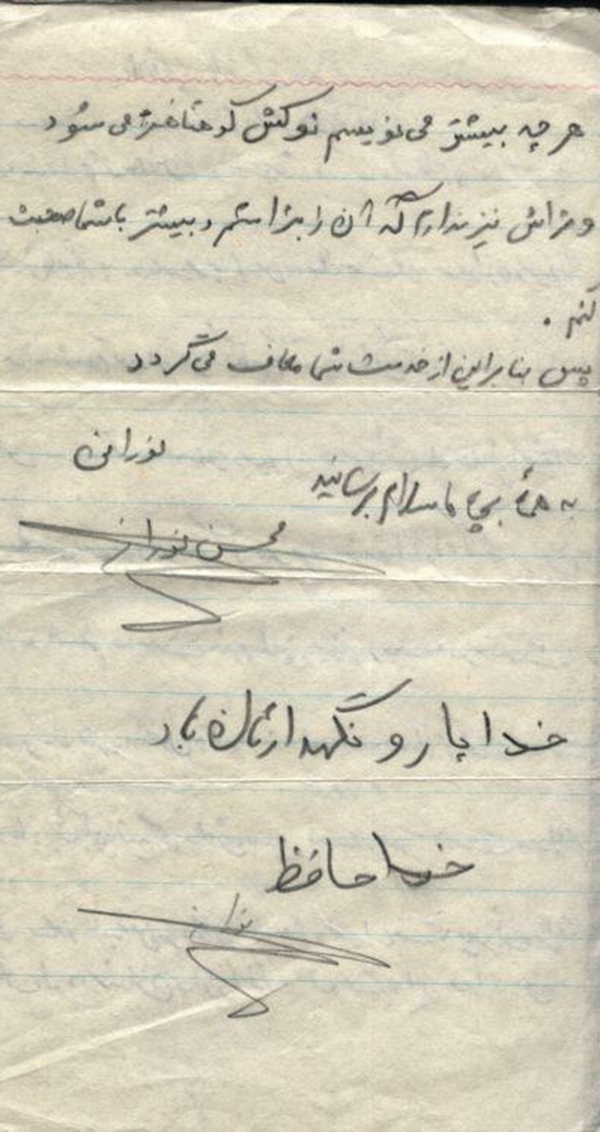 هر چه بیشتر می نویسم نوکش کوهتاختر می شود
و تراش نیز ندارم که آن را بتراشم و بیشتر با شما صحبت
کنم .
پس بنابراین از خدمت شما معاف می گردد
نورانی
به همۀ بچه ها سلام برسانید
محسن نورانی
خدا یار و نگهدارتان باد
خداحافظ